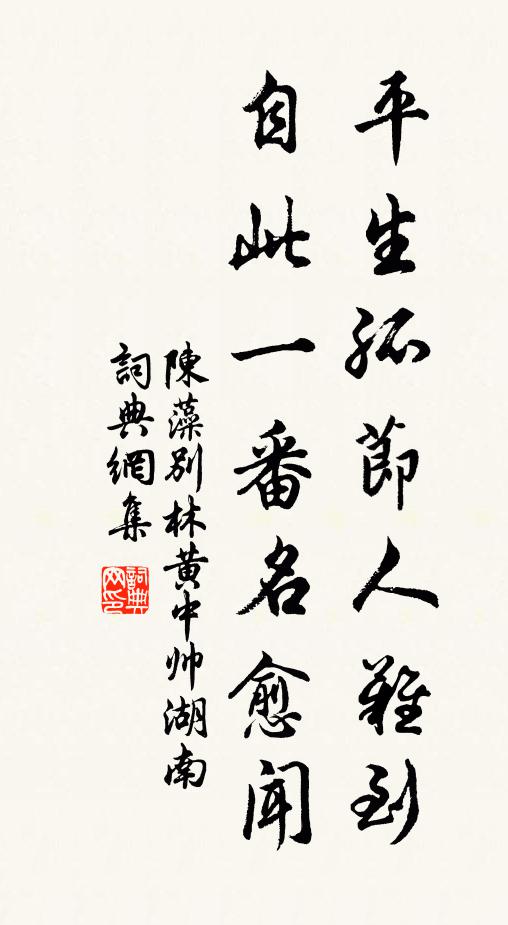 平生孤節人難到
自此一番名愈聞
陳藻別林黄中帅湖南
詞典網集
詞典
网印